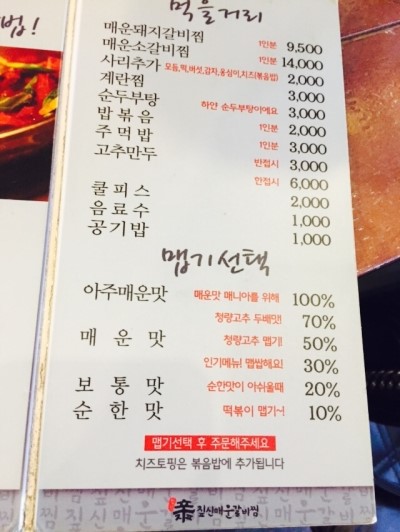 법!
먹을거리
매운돼지갈비찜 1인분 9,500
매운소갈비찜 1인분 14,000
사리추가 모듬,떡,버섯,감자,옹심이,치즈(볶음밥) 2,000
계란찜 3,000
순두부탕 하얀 순두부탕이에요 3,000
밥볶음 1인분 2,000
주먹밥 1인분 3,000
고추만두 반접시 3,000
한접시 6,000
쿨피스 2,000
음료수 1,000
공기밥 1,000
맵기선택
아주매운맛 매운맛 매니아를 위해 100%
청량고추 두배맛! 70%
매운맛 청량고추 맵기! 50%
인기메뉴! 맵밥해요! 30%
보통맛 순한맛이 아쉬울때 20%
순한맛 떡볶이 맵기~! 10%
맵기선택 후 주문해주세요
치즈토핑은 볶음밥에 추가됩니다
짚신매운갈비찜